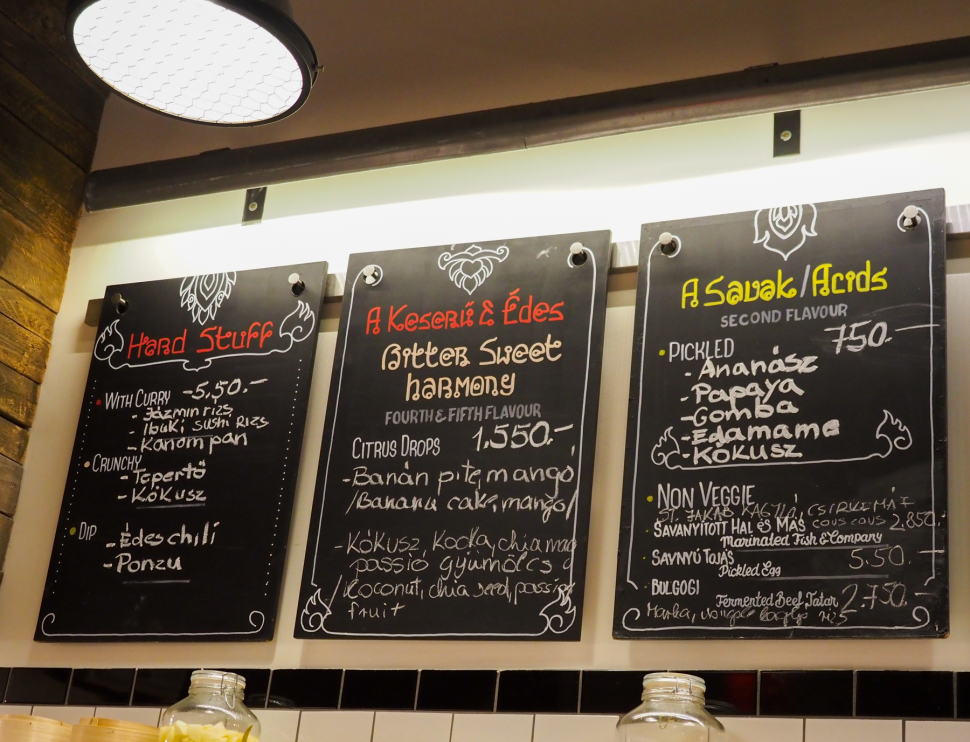 Hard Stuff
With Curry -5,50.-
- Jázmin rizs
- Ibuki, sushi rizs
- Kanom pan
Crunchy
- Tepertő
- Kókusz
Dip
- Édes chili
- Ponzu
A Keserű & Édes
Bitter Sweet
harmony
FOURTH & FIFTH FLAVOUR
Citrus Drops 1.550.-
- Banán pite, mangó
/Banana cake, mango/
- Kókusz, Kocka, chia mag
passió gyümölcs
/Coconut, chia seed, passion
fruit
A Savak/Acids
SECOND FLAVOUR
Pickled 750.-
- Ananász
- Papaya
- Gomba
- Edamame
- Kókusz
Non Veggie
ST. JAKAB KAGYLÓ, CSIRKEMÁJ
Savanyított Hal és Más cous cous 2,850.-
Marinated Fish & Company
Savnyú Tojás 5.50.-
Pickled Egg
Bulgogi
Fermented Beef Tatar 2.750.-
Marha,